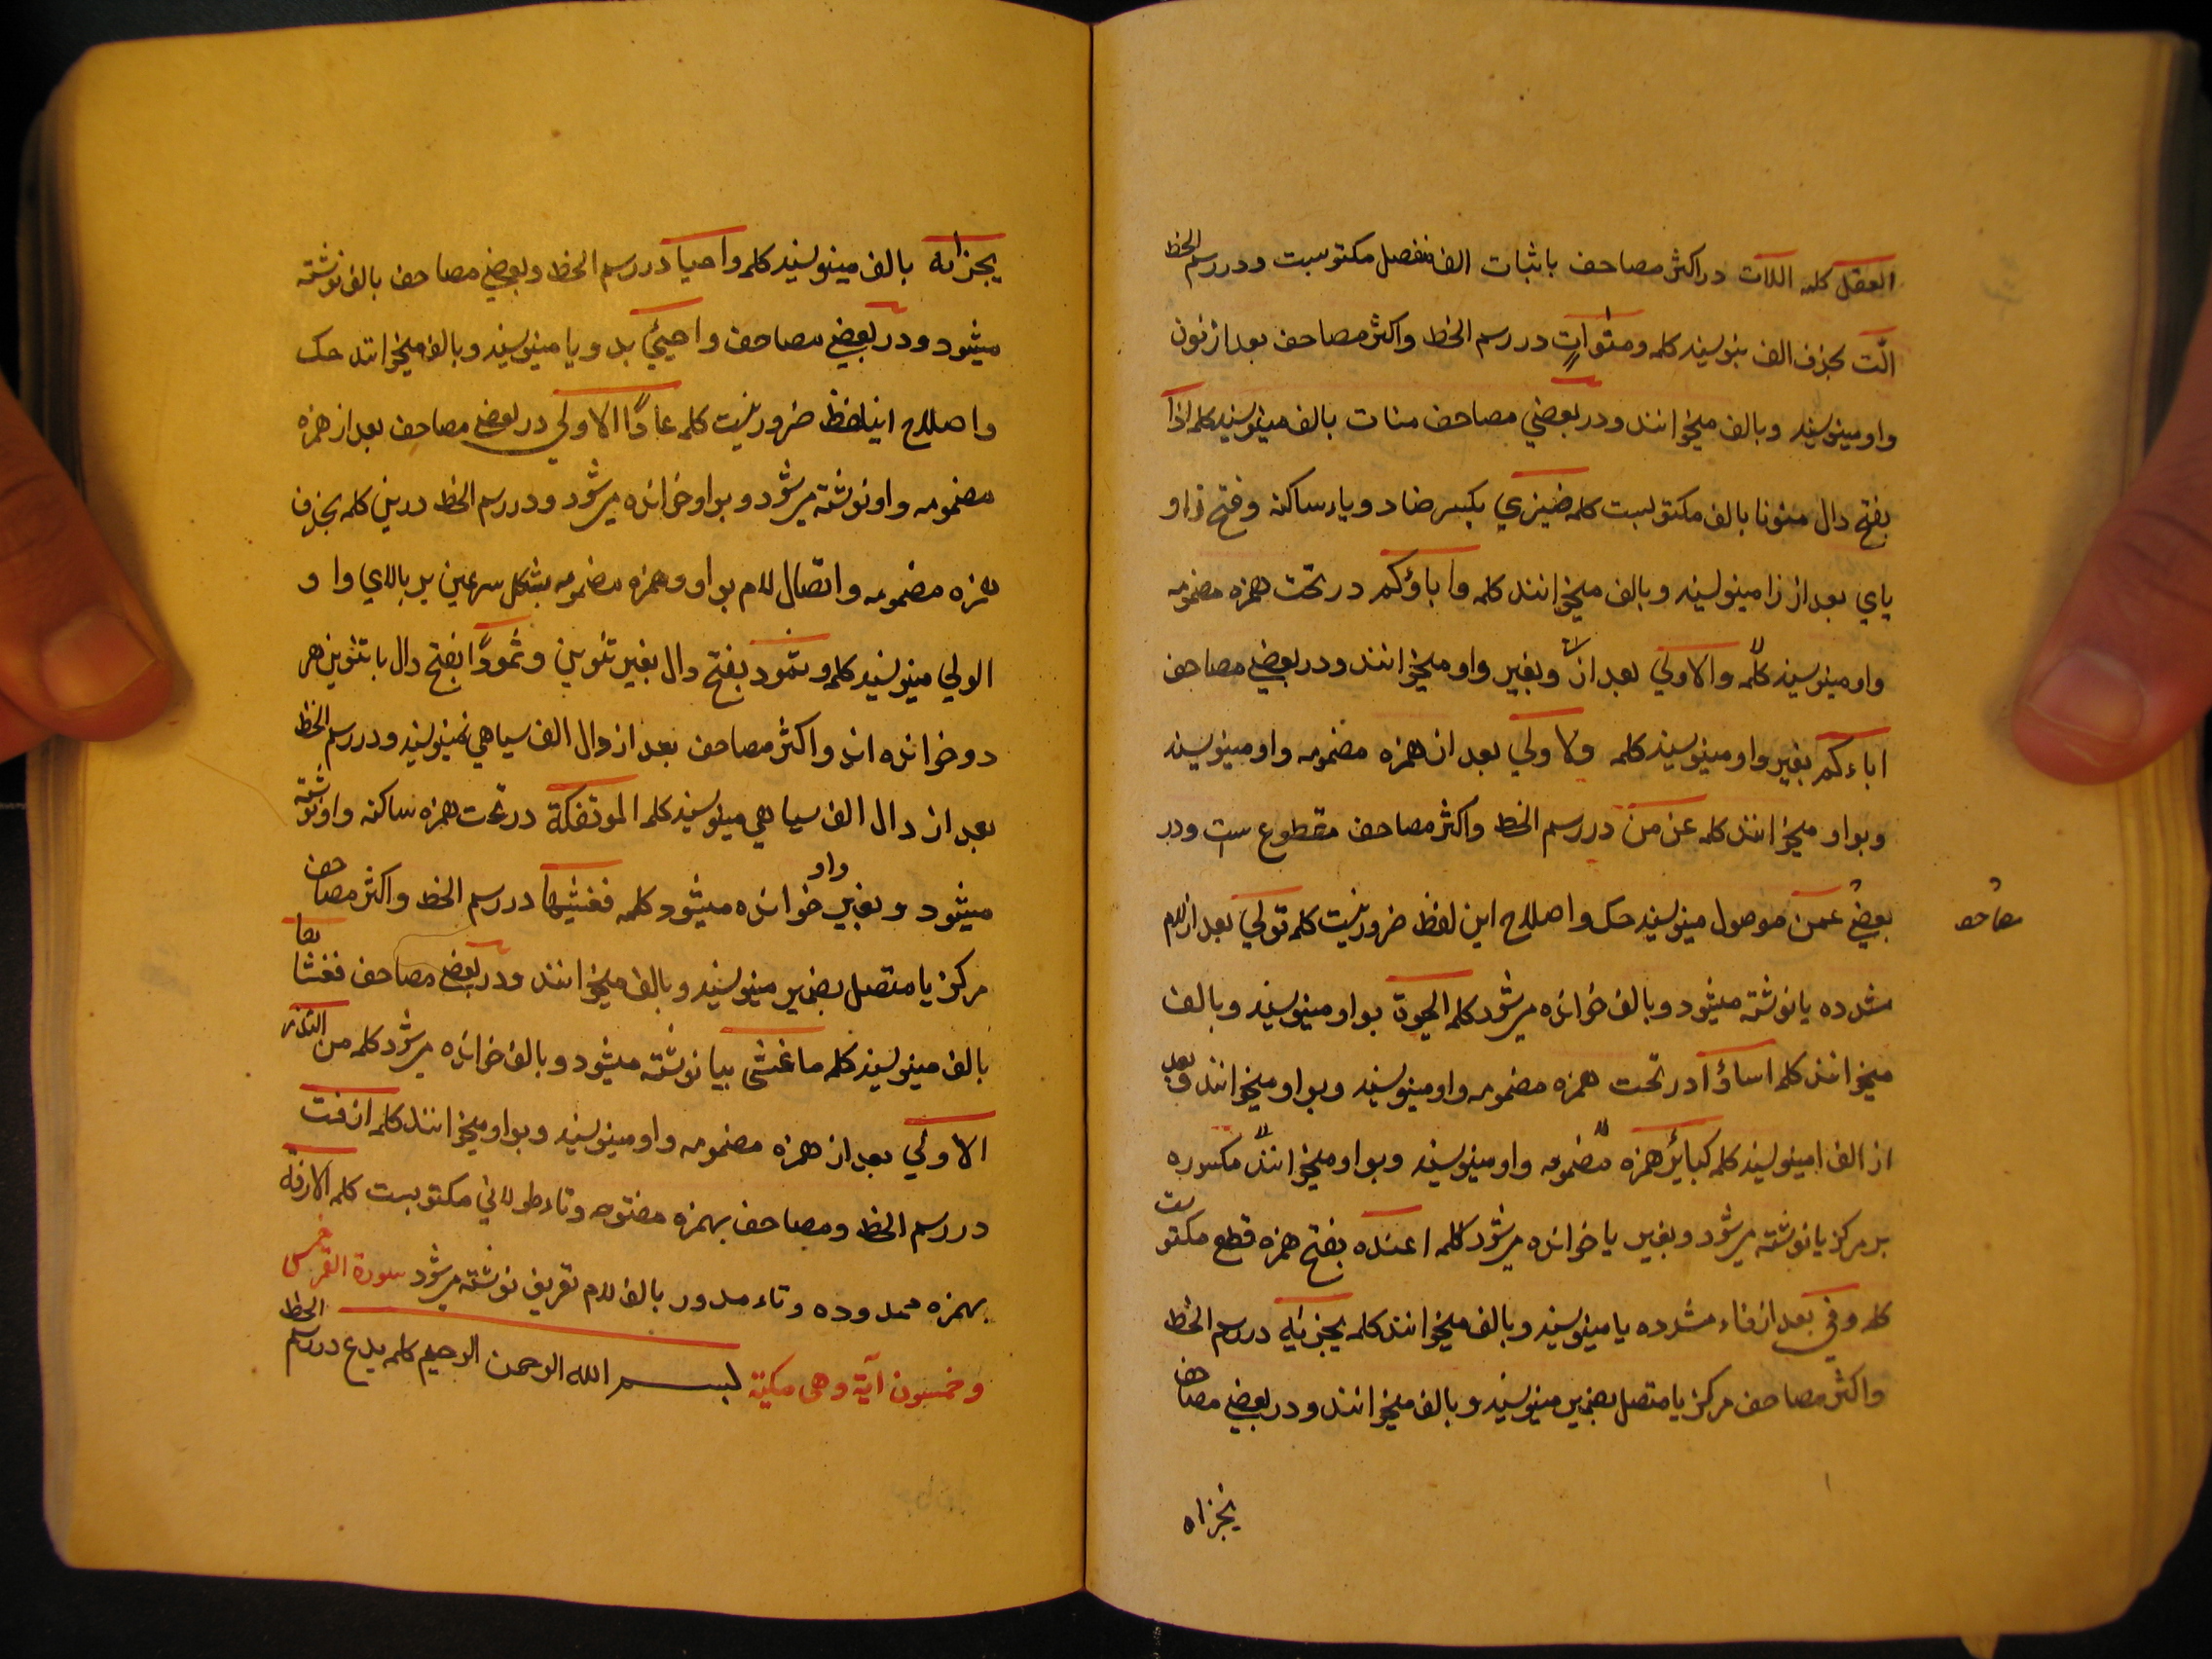 العقل کلمه اللات در اکثر مصاحف باثبات الف منفصل مکتوبست و در رسم الخط
الّت بحذف الف بنویسند کلمه ومنوات در رسم الخط واکثر مصاحف بعد از نون
واو مینویسند وبالف میخوانند ودر بعضي مصاحف منات بالف مینویسند کلمه اذا
بفتح دال منونا بالف مکتوبست کلمه ضیزي بکسر ضاد ویاء ساکنه وفتح زا و
یاي بعد از زا مینویسند وبالف میخوانند کلمه واباؤکم در تحت همزه مضمومه
واو مینویسند کلمه والاولي بعد از وبغیر واو میخوانند ودر بعضي مصاحف
اباءکم بغیر واو مینویسند کلمه ولاولي بعد از همزه مضمومه واو مینویسند
وبواو میخوانند کلمه عن من در رسم الخط واکثر مصاحف مقطوع ست ودر
بعضي عمن موصول مینویسند حک واصلاح این لفظ ضرور نیست کلمه تولي بعد از لام
مصاحف
مشدده یا نوشته میشود وبالف خوانده میشود کلمه الحیوة بواو مینویسند وبالف
میخوانند کلمه اساؤا در تحت همزه مضمومه واو مینویسند وبواو میخوانند وبعد
از الف مینویسند کلمه کبائر همزه مضمومه واو مینویسند وبواو میخوانند مکسوره
بر مرکز یا نوشته میشود وبغیر یا خوانده میشود کلمه اعنده بفتح همزه قطع مکتوبست
کلمه وفي بعد از فاء مشدده یا مینویسند وبالف میخوانند کلمه یجزیه در رسم الخط
واکثر مصاحف مرکز یا متصل بضمیر مینویسند وبالف میخوانند ودر بعضي مصاحف
یجزاه
یجزاه بالف مینویسند کلمه واحیا در رسم الخط وبعضي مصاحف بالف نوشته
میشود ودر بعضي مصاحف واحیي بد ویا مینویسند وبالف میخوانند حک
واصلاح اینلفظ ضرور نیست کلمه عادًا الاولي در بعضي مصاحف بعد از همزه
مضمومه واو نوشته میشود وبواو خوانده میشود ودر رسم الخط درین کلمه بحذف
همزه مضمومه واتصال لام بواو وهمزه مضمومه بشکل سرعین بر بالاي واو
الولي مینویسند کلمه وثمود بفتح دال بغیر تنوین وثمودًا بفتح دال باتنوین هر
دو خوانده اند واکثر مصاحف بعد از دال الف سیاهي نمینویسند ودر رسم الخط
بعد از دال الف سیاهي مینویسند کلمه الموتفکة در تحت همزه ساکنه واو نوشته
میشود وبغیر واو خوانده میشود کلمه فغشیها در رسم الخط واکثر مصاحف
مرکز یا متصل بضمیر مینویسند وبالف میخوانند ودر بعضي مصاحف فغشاها
بالف مینویسند کلمه ما غشی بیا نوشته میشود وبالف خوانده میشود کلمه من النذر
الاولي بعد از همزه مضمومه واو مینویسند وبواو میخوانند کلمه ازفت
در رسم الخط ومصاحف بهمزه مفتوحه وتاء طولاني مکتوبست کلمه الازفة
بهمزه ممدوده وتاء مدور بالف لام تعریف نوشته میشود سورة القمر خمس
وخمسون آیة وهي مکیة بسم الله الرحمن الرحیم کلمه یدع در رسم الخط